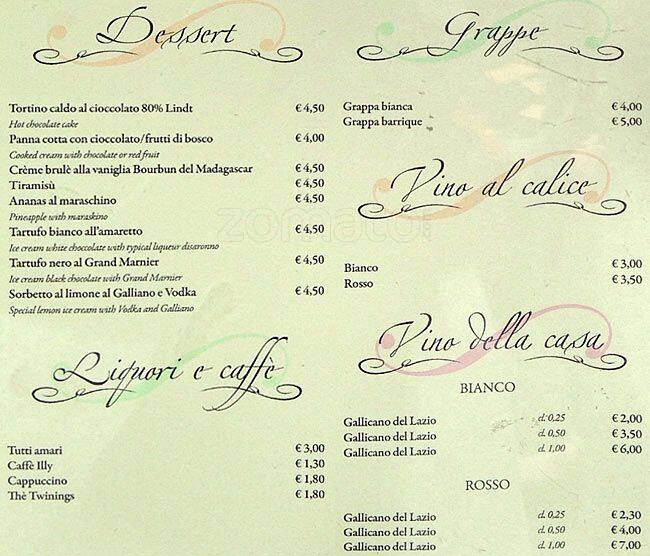 Dessert
Tortino caldo al cioccolato 80% Lindt € 4,50
Hot chocolate cake
Panna cotta con cioccolato/frutti di bosco € 4,00
Cooked cream with chocolate or red fruit
Crème brulè alla vaniglia Bourbun del Madagascar € 4,50
Tiramisù € 4,50
Ananas al maraschino € 4,50
Pineapple with maraskino
Tartufo bianco all'amaretto € 4,50
Ice cream white choccolate with typical liqueur disaronno
Tartufo nero al Grand Marnier € 4,50
Ice cream black chocolate with Grand Marnier
Sorbetto al limone al Galliano e Vodka € 4,50
Special lemon ice cream with Vodka and Galliano
Liquori e caffè
Tutti amari € 3,00
Caffè Illy € 1,30
Cappuccino € 1,80
Thè Twinings € 1,80
Grappe
Grappa bianca € 4,00
Grappa barrique € 5,00
Vino al calice
Bianco € 3,00
Rosso € 3,50
Vino della casa
BIANCO
Gallicano del Lazio cl. 0,25 € 2,00
Gallicano del Lazio cl. 0,50 € 3,50
Gallicano del Lazio cl. 1,00 € 6,00
ROSSO
Gallicano del Lazio cl. 0,25 € 2,30
Gallicano del Lazio cl. 0,50 € 4,00
Gallicano del Lazio cl. 1,00 € 7,00
zomato